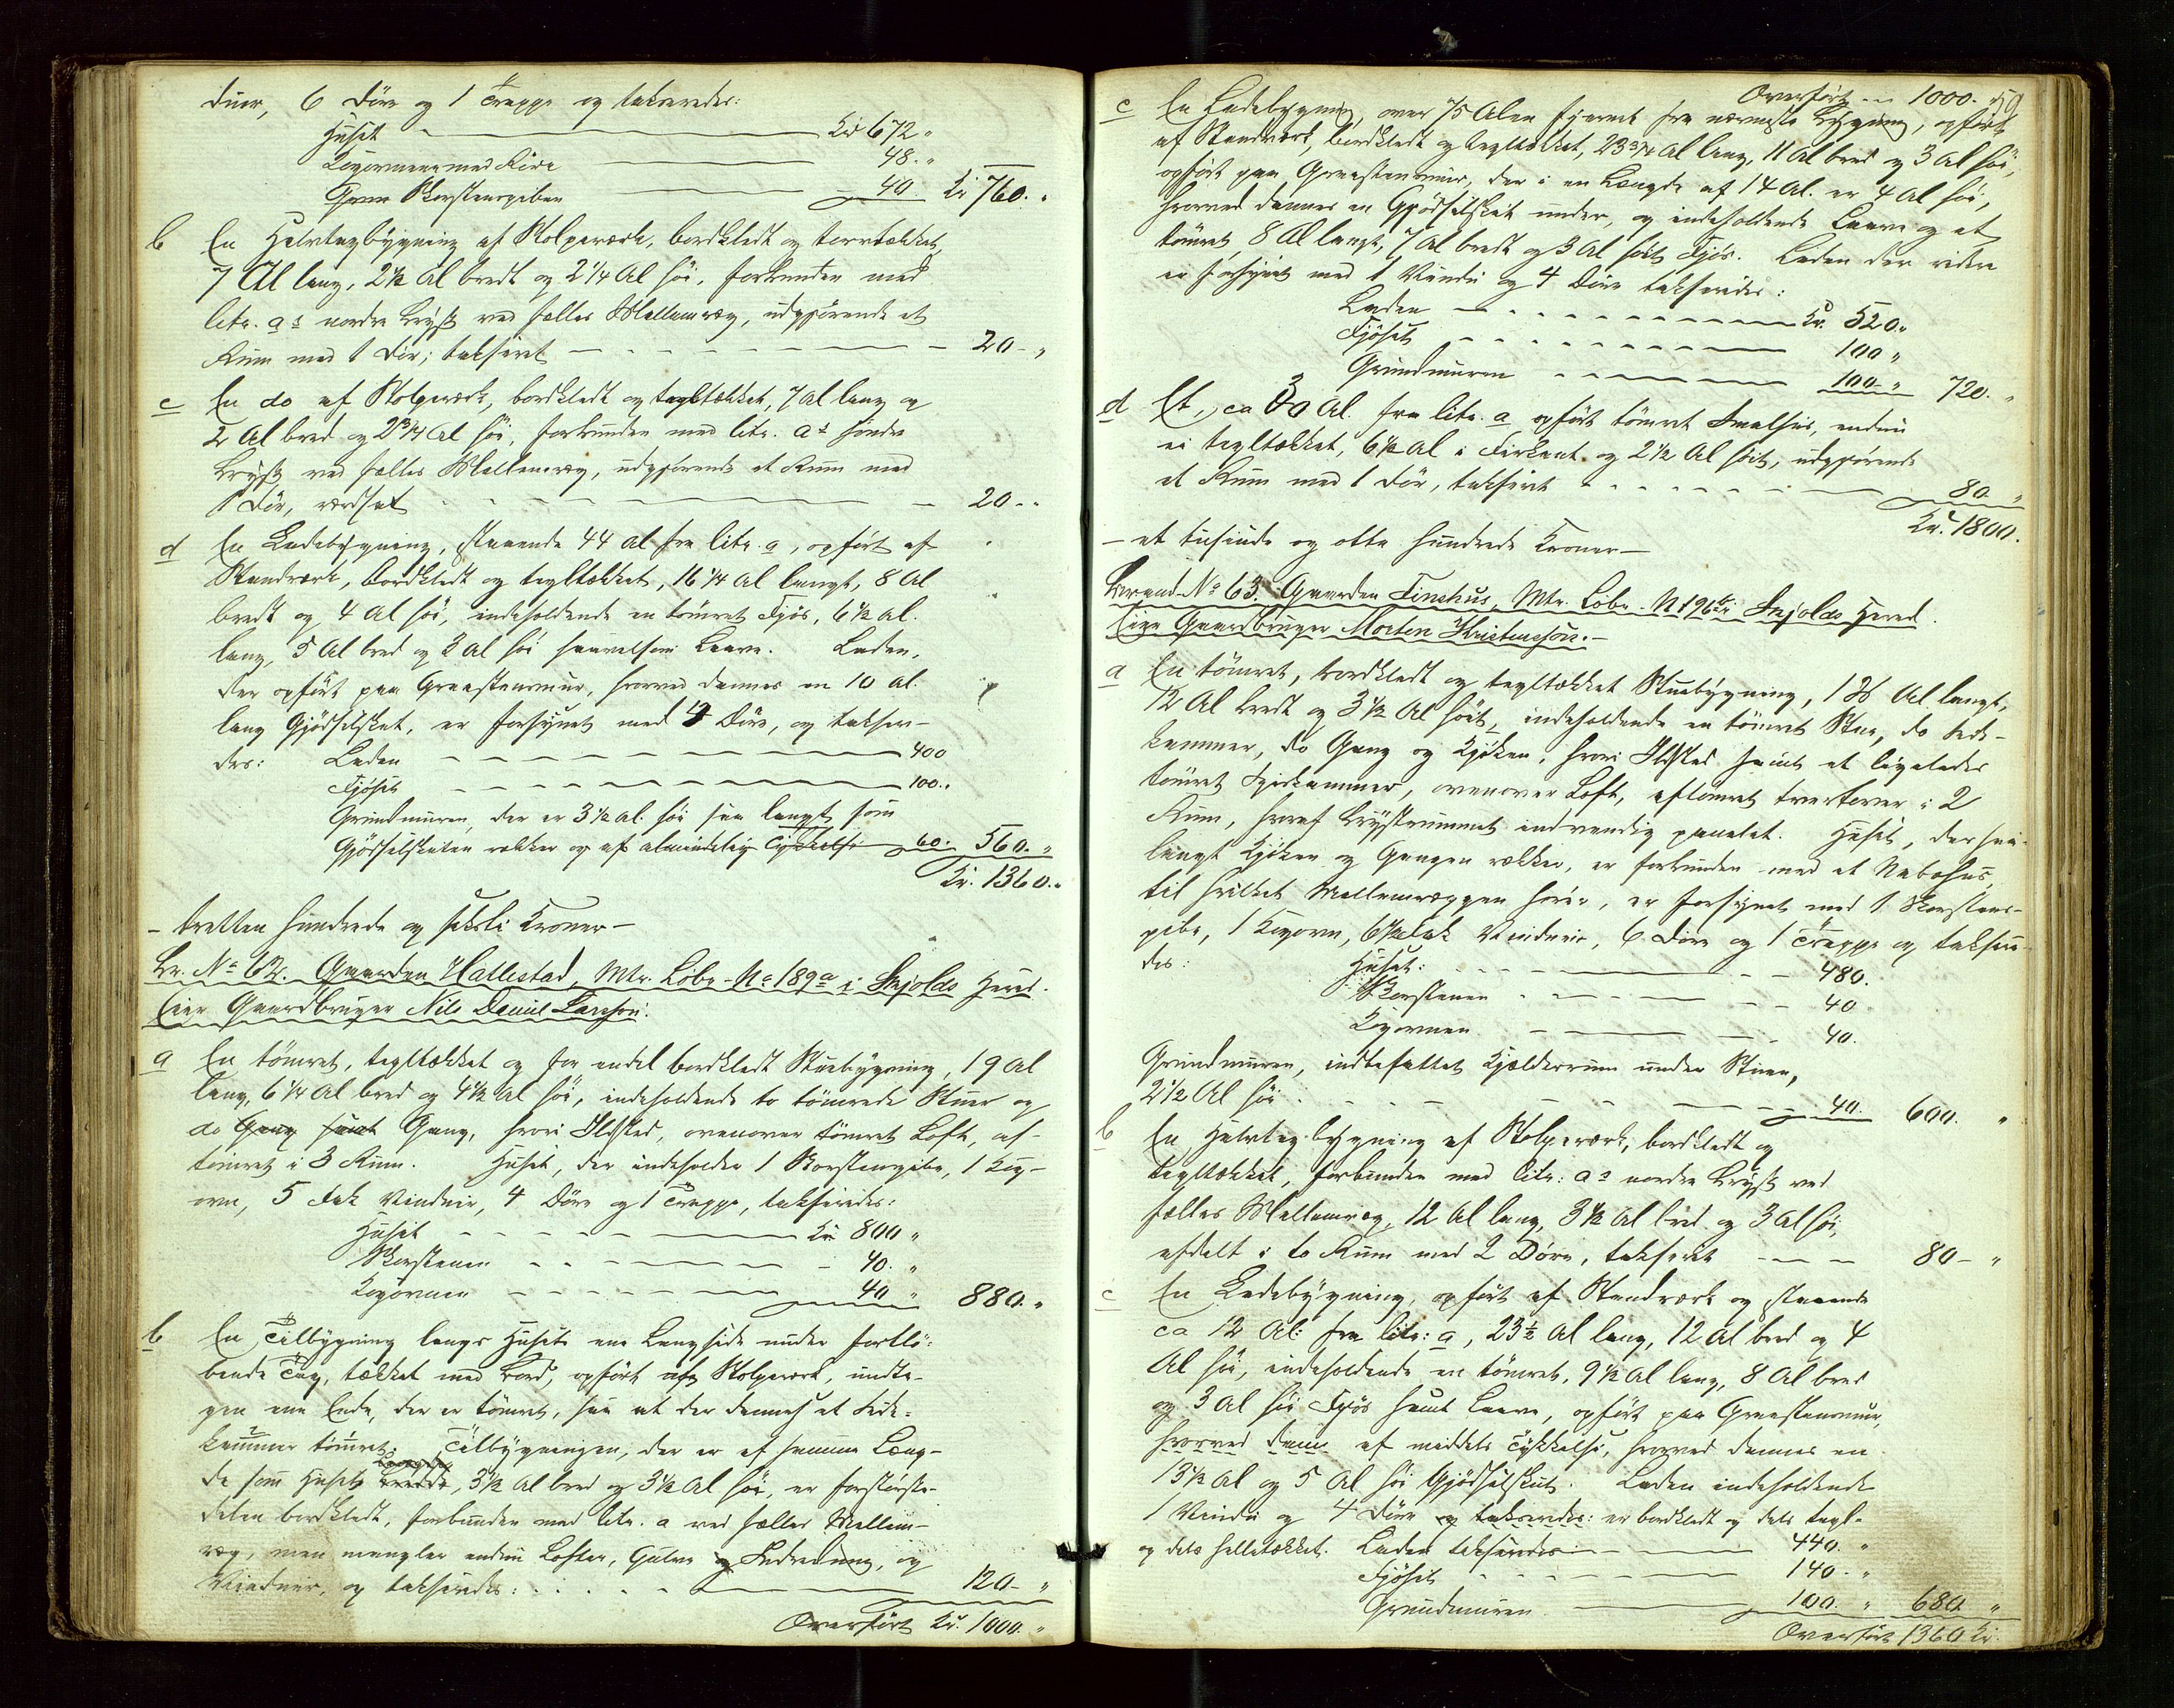 duer, 6 Döre og 1 Trappe og takseredes:
Huset — Kr 672 "
Kogeovnen med Röre — 48. "
Skorstenspiben — 40. Kr 760. "
b En Halvtagbygning af Stolpeværk, bordklædt og torvtækket,
7 Al lang, 2 1/2 Al bredt og 2 1/4 Al höi, forbunden med
litr. a s nordre Bryst ved fælles Mellemvæg, udgjörende et
Rum med 1 Dör; takseret — 20 - "
c En do af Stolpeværk, bordklædt og tagltækket, 7 Al lang og
2 Al bred og 2 3/4 Al höi, forbunden med litr. a s söndre
Bryst ved fælles Mellemvæg, udgjörende et Rum med
1 Dör, værdsat — 20 - "
d En Ladebygning, staaende 44 Al fra litr. a, opfört af
Standværk, bordklædt og tegltækket, 16 1/4 Al langt, 8 Al
bredt og 4 Al höi, indeholdende en tömret Fjös, 6 1/2 Al.
lang, 5 Al bred og 3 Al höi saavelsom Laave. Laden,
der opfört paa Graastensmur, hvorved dannes en 10 Al.
lang Gjödselskut, er forsynet med 4 Döre, og takser-
des: Laden — 400
Fjöset — 100 "
Grundmuren, der er 3 1/2 Al. höi saa langt som
Gjödselskuten rækker og af almindelig Tykkelse 60. 560. "
Kr. 1360. "
- tretten hundrede og seksti Kroner -
Br. No 62. Gaarden Hallestad, Mtr. Löbe-No 189 a i Skjolds Hered.
Eier Gaardbruger Nils Daniel Larsson.
a En tömret, tegltækket og for endel bordklædt Stuebygning, 19 Al
lang, 6 1/4 Al bred og 4 1/2 Al höi, indeholdende to tömrede Stuer og
do Gang samt Gang, hvori Ildsted, ovenover tömret Loft, af-
tömret i 3 Rum. Huset, der indeholder 1 Skorstenspibe, 1 Kog-
ovn, 5 Fak Vinduer, 4 Döre og 1 Trappe, takseredes:
Huset — Kr. 800 "
Skorstenen — 40. "
Kogovnen — 40 " 880. "
b En Tilbygning langs Husets ene Langside under fortlö-
bende Tag, tækket med Bord, opfört af Stolpeværk, undta-
gen ene Ende, der er tömret, saa at der dannes et Side-
kammer tömret. Tilbygningen, der er af samme Læng-
Længde
de som Husets Bredde, 3 1/2 Al bred og 3 1/2 Al höi, er forstörste-
delen bordklædt, forbunden med litr. a ved fælles Mellem-
væg, men mangler endnu Lofter, Gulve og Indredning, og
Vinduer, og takseredes: — 120 - "
Overfört Kr. 1000. "
Overfört — 1000. 59
c En Ladebygning, over 75 Alen fjernet fra nærmeste Bygning, opfört
af Standværk, bordklædt og tegltækket, 23 3/4 Al lang, 11 Al bred og 3 Al höi,
opfört paa Graastensmur, der i en Længde af 14 Al. er 4 Al höi,
hvorved dannes en Gjödselskut under, og indeholdende Laave og et
tömret 8 Al langt, 7 Al bredt og 3 Al höit Fjös. Laden der videre
er forsynet med 1 Vindu og 4 Döre takseredes:
Laden — Kr. 520 "
Fjöset — 100 "
Grundmuren — 100 " 720. "
d Et, ca 30 Al. fra litr. a opfört tömret Smalhus, endnu
ei tegltækket, 6 1/2 Al i Firkant og 2 1/2 Al höit, udgjörende
et Rum med 1 Dör, takseret — 80 "
Kr. 1800.
- et tusinde og otte hundrede Kroner -
Brand-No 63. Gaarden Tinshus, Mtr. Löbe-N 196 i Skjolds Hered.
Eier Gaardbruger Morten Kristensson. -
a En tömret, bordklædt og tegltækket Stuebygning, Al langt,
12 Al bredt og 3 1/2 Al höit, indeholdende en tömret Stue, do Side-
kammer, do Gang og Kjöken, hvori Ildsted samt et ligeledes
tömret Spiskammer, ovenover Loft, aftömret tvertover i 2
Rum, hvoraf Brystrummet indvendig panelet. Huset, der saa-
langt Kjöken og Gangen rækker, er forbunden med et Nabohus,
til hvilket Mellemvæggen hörer, er forsynet med 1 Skorstens-
pibe, 1 Kogovn, 6 1/2 Fak Vinduer, 6 Döre og 1 Trappe og taksere-
des: Huset: — 480.
Skorstenen — 40
Kogovnen — 40.
Grundmuren, indbefattet Kjælderrum under Stuen,
2 1/2 Al höi — 40. 600. "
b En Halvtagbygning af Stolpeværk, bordklædt og
tegltækket, forbunden med litr: a s nordre Bryst ved
fælles Mellemvæg, 12 Al lang, 3 1/2 Al bred og 3 Al höi,
afdelt i to Rum med 2 Döre, takseret — 80 - "
c En Ladebygning, opfört af Standværk og staaende
ca 12 Al: fra litr: a, 23 1/2 Al lang, 12 Al bred og 4
Al höi, indeholdende en tömret, 9 1/2 Al lang, 8 Al bred
og 3 Al höi Fjös samt Laave, opfört paa Graastensmur,
hvorved dann af middels Tykkelse, hvorved dannes en
13 1/2 Al og 5 Al höi Gjödselskut. Laden indeholdende
1 Vindu og 4 Döre og takseredes: er bordklædt og dels tegl-
og dels helletækket. Laden takseredes — 440. "
Fjöset — 140. "
Grundmuren — 100. " 680. "
Overfört 1360 Kr.